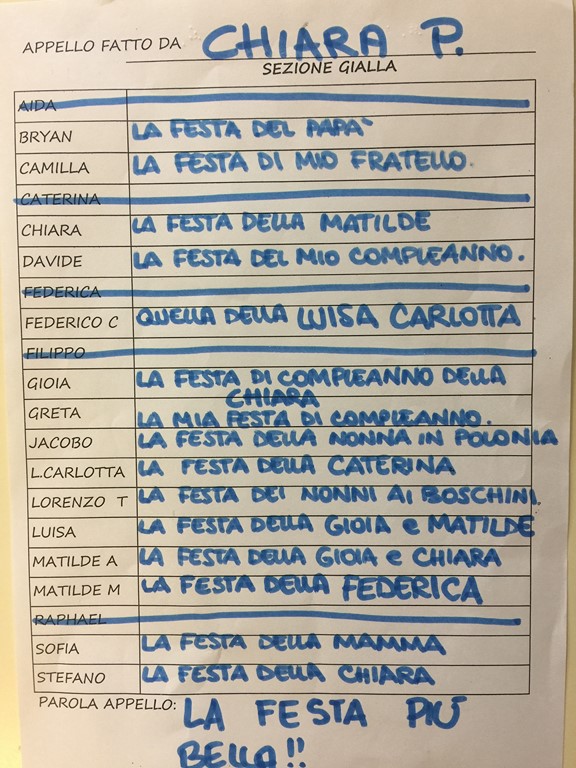 APPELLO FATTO DA CHIARA P.
SEZIONE GIALLA
AIDA
BRYAN LA FESTA DEL PAPA`
CAMILLA LA FESTA DI MIO FRATELLO.
CATERINA
CHIARA LA FESTA DELLA MATILDE
DAVIDE LA FESTA DEL MIO COMPLEANNO.
FEDERICA
FEDERICO C QUELLA DELLA LUISA CARLOTTA
FILIPPO
GIOIA LA FESTA DI COMPLEANNO DELLA
CHIARA
GRETA LA MIA FESTA DI COMPLEANNO.
JACOBO LA FESTA DELLA NONNA IN POLONIA
L.CARLOTTA LA FESTA DELLA CATERINA
LORENZO T LA FESTA DEI NONNI AI BOSCHINI.
LUISA LA FESTA DELLA GIOIA e MATILDE
MATILDE A LA FESTA DELLA GIOIA e CHIARA
MATILDE M LA FESTA DELLA FEDERICA
RAPHAEL
SOFIA LA FESTA DELLA MAMMA
STEFANO LA FESTA DELLA CHIARA
PAROLA APPELLO: LA FESTA PIÙ
BELLA!!